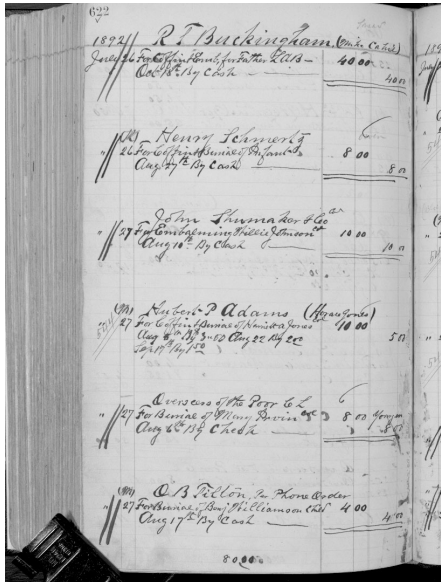 622
1892 R T Buckingham
July 26 For Coffin & Burial for Father L A B — 40 00
Oct 18th By Cash — 40 00
(Mr) Henry Schmertz
" 26 For Coffin & Burial of Infant 8 00
Aug 27th By Cash — 8 00
John Shumaker & Co
" 27 For Embalming Willie Johnson 10 00
Aug 10th By Cash — 10 00
(Mr) Hubert P Adams (Horace Jones)
27 For Coffin & Burial of Jones 10 00
Aug By Aug 22 By 2 00 5 00
Sep 17th By 1 50
Overseers of the Poor
" 27 For Burial of Mary 8 00
Aug 6th By Check — 8 00
(Mr) O B Tilton, Per Phone Order
" 27 For Burial of Benj Williamson Chd 4 00
Aug 17th By Cash — 4 00
80 00